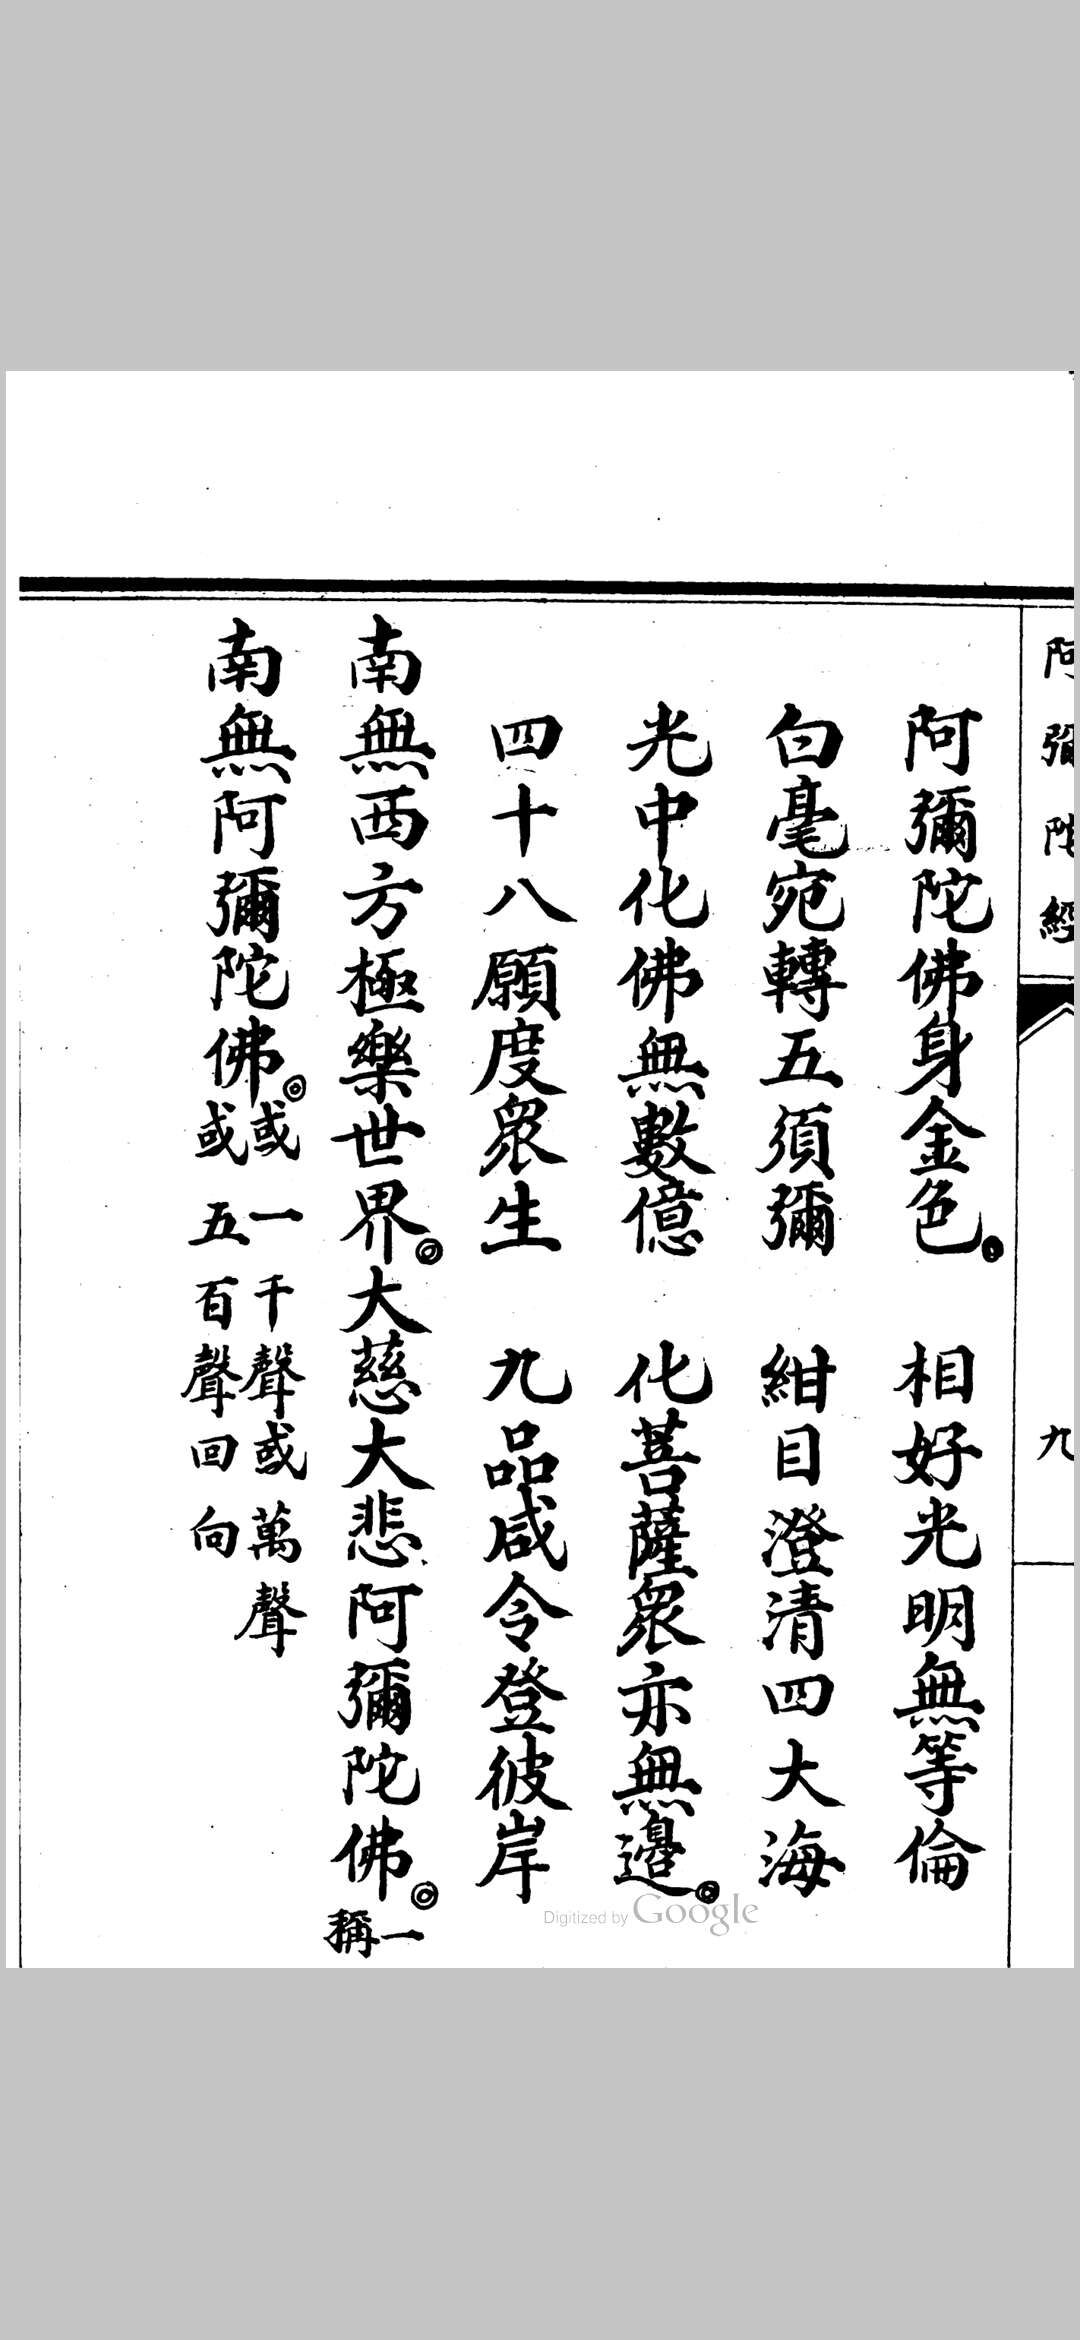 阿彌陀經
九
阿彌陀佛身金色 相好光明無等倫
白毫宛轉五須彌 紺目澄清四大海
光中化佛無數億 化菩薩衆亦無邊
四十八願度衆生 九品咸令登彼岸
南無西方極樂世界大慈大悲阿彌陀佛一稱
南無阿彌陀佛或一千聲或萬聲
或五百聲回向
Digitized by Google